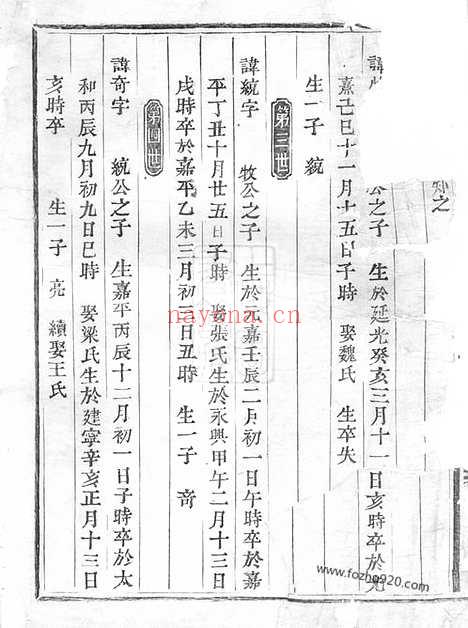 之
諱 公之子 生於延光癸亥三月十一日亥時卒於元
嘉己巳十一月十五日子時 娶魏氏 生卒失
生一子 統
第三世
諱統字 牧公之子 生於元嘉壬辰二月初一日午時卒於嘉
平丁丑十月廿五日子時 娶張氏生於永興甲午二月十三日
戌時卒於嘉平乙未三月初三日丑時 生一子 奇
第四世
諱奇字 統公之子 生嘉平丙辰十二月初一日子時卒於太
和丙辰九月初九日巳時 娶梁氏生於建寧辛亥正月十三日
亥時卒 生一子 亮 續娶王氏
nayona.cn
www.fozhu920.com